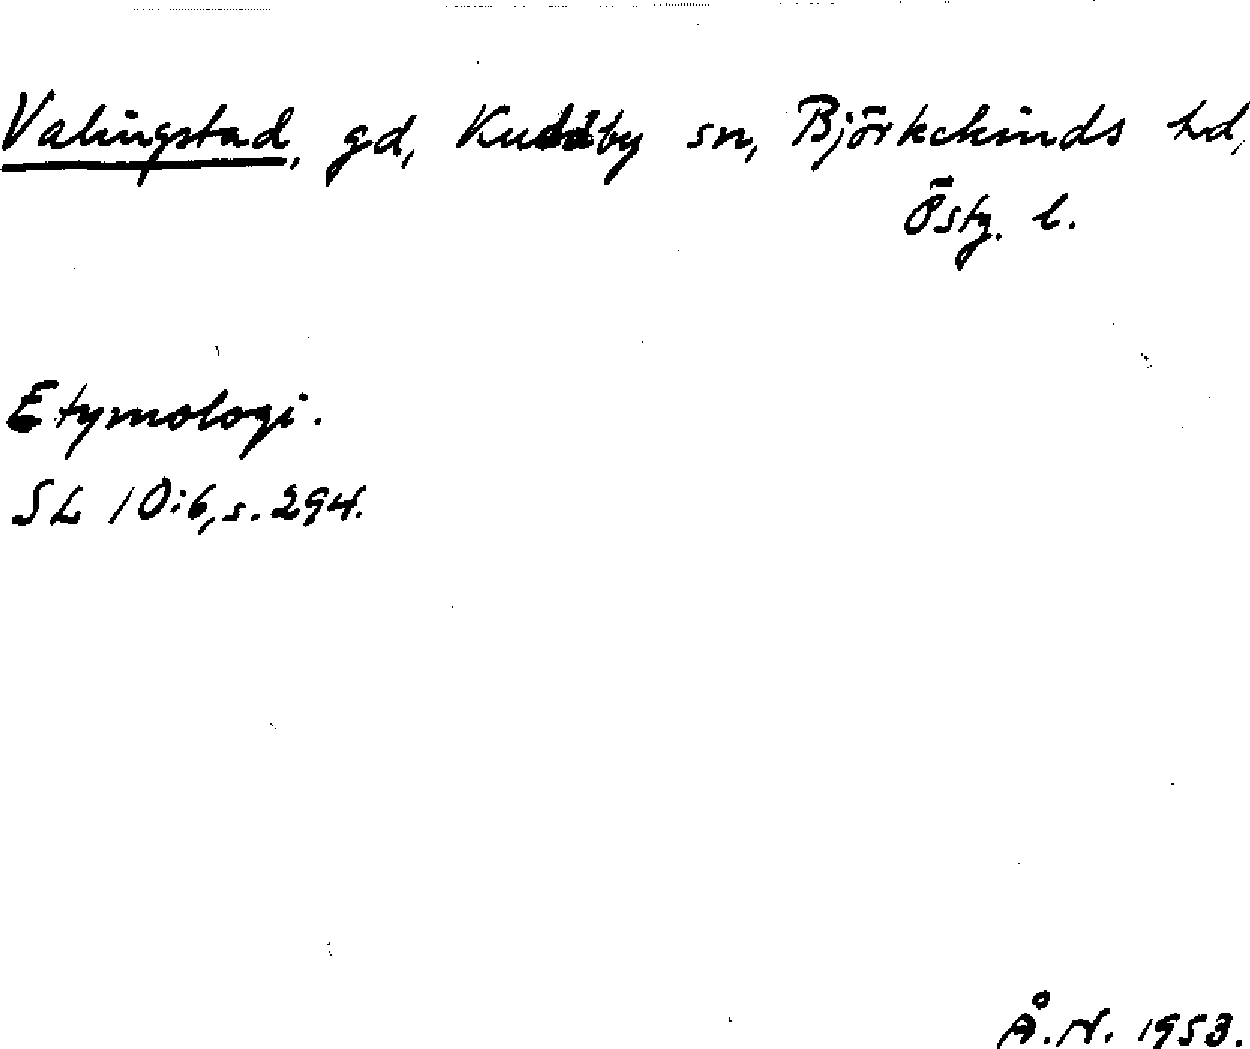 Valingstad, gd, Kuddby sn, Björkekinds hd,
Östg. l.
Etymologi.
SL 10:6, s. 294.
Å. N. 1953.